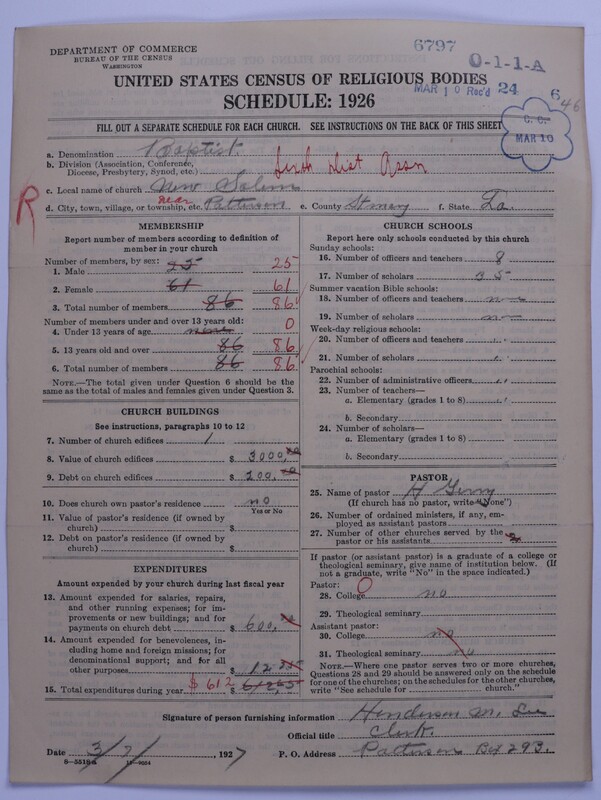 6797
O-1-1-A
DEPARTMENT OF COMMERCE
BUREAU OF THE CENSUS
WASHINGTON
MAR 10 Rec'd 24
6 46
UNITED STATES CENSUS OF RELIGIOUS BODIES
SCHEDULE: 1926
C. C.
MAR 10
FILL OUT A SEPARATE SCHEDULE FOR EACH CHURCH. SEE INSTRUCTIONS ON THE BACK OF THIS SHEET
a. Denomination Baptist
b. Division (Association, Conference, Diocese, Presbytery, Synod, etc.) Sixth Dist Assn
c. Local name of church New Salem
R
d. City, town, village, or township, etc. near Patterson e. County St mary f. State La.
MEMBERSHIP
Report number of members according to definition of member in your church
Number of members, by sex:
1. Male 25 25
2. Female 61 61
3. Total number of members 86 86
Number of members under and over 13 years old:
4. Under 13 years of age none 0
5. 13 years old and over 86 86
6. Total number of members 86 86
NOTE.—The total given under Question 6 should be the same as the total of males and females given under Question 3.
CHURCH BUILDINGS
See instructions, paragraphs 10 to 12
7. Number of church edifices 1
8. Value of church edifices $ 3000,00
9. Debt on church edifices $ 200,00
10. Does church own pastor's residence no
Yes or No
11. Value of pastor's residence (if owned by church) $
12. Debt on pastor's residence (if owned by church) $
EXPENDITURES
Amount expended by your church during last fiscal year
13. Amount expended for salaries, repairs, and other running expenses; for improvements or new buildings; and for payments on church debt $ 600,00
14. Amount expended for benevolences, including home and foreign missions; for denominational support; and for all other purposes $ 12
15. Total expenditures during year $ 612 $
CHURCH SCHOOLS
Report here only schools conducted by this church
Sunday schools:
16. Number of officers and teachers 8
17. Number of scholars 35
Summer vacation Bible schools:
18. Number of officers and teachers
19. Number of scholars
Week-day religious schools:
20. Number of officers and teachers
21. Number of scholars
Parochial schools:
22. Number of administrative officers
23. Number of teachers—
a. Elementary (grades 1 to 8)
b. Secondary
24. Number of scholars—
a. Elementary (grades 1 to 8)
b. Secondary
PASTOR
25. Name of pastor H
(If church has no pastor, write "None")
26. Number of ordained ministers, if any, employed as assistant pastors
27. Number of other churches served by the pastor or his assistants
If pastor (or assistant pastor) is a graduate of a college or theological seminary, give name of institution below. (If not a graduate, write "No" in the space indicated.)
Pastor:
28. College O no
29. Theological seminary
Assistant pastor:
30. College no
31. Theological seminary no
NOTE.—Where one pastor serves two or more churches, Questions 28 and 29 should be answered only on the schedule for one of the churches; on the schedules for the other churches, write "See schedule for church."
Signature of person furnishing information Henderson M. Lee
Official title Clerk.
Date 3/7/, 1927 P. O. Address Patterson Bx 293.
8-5518 a